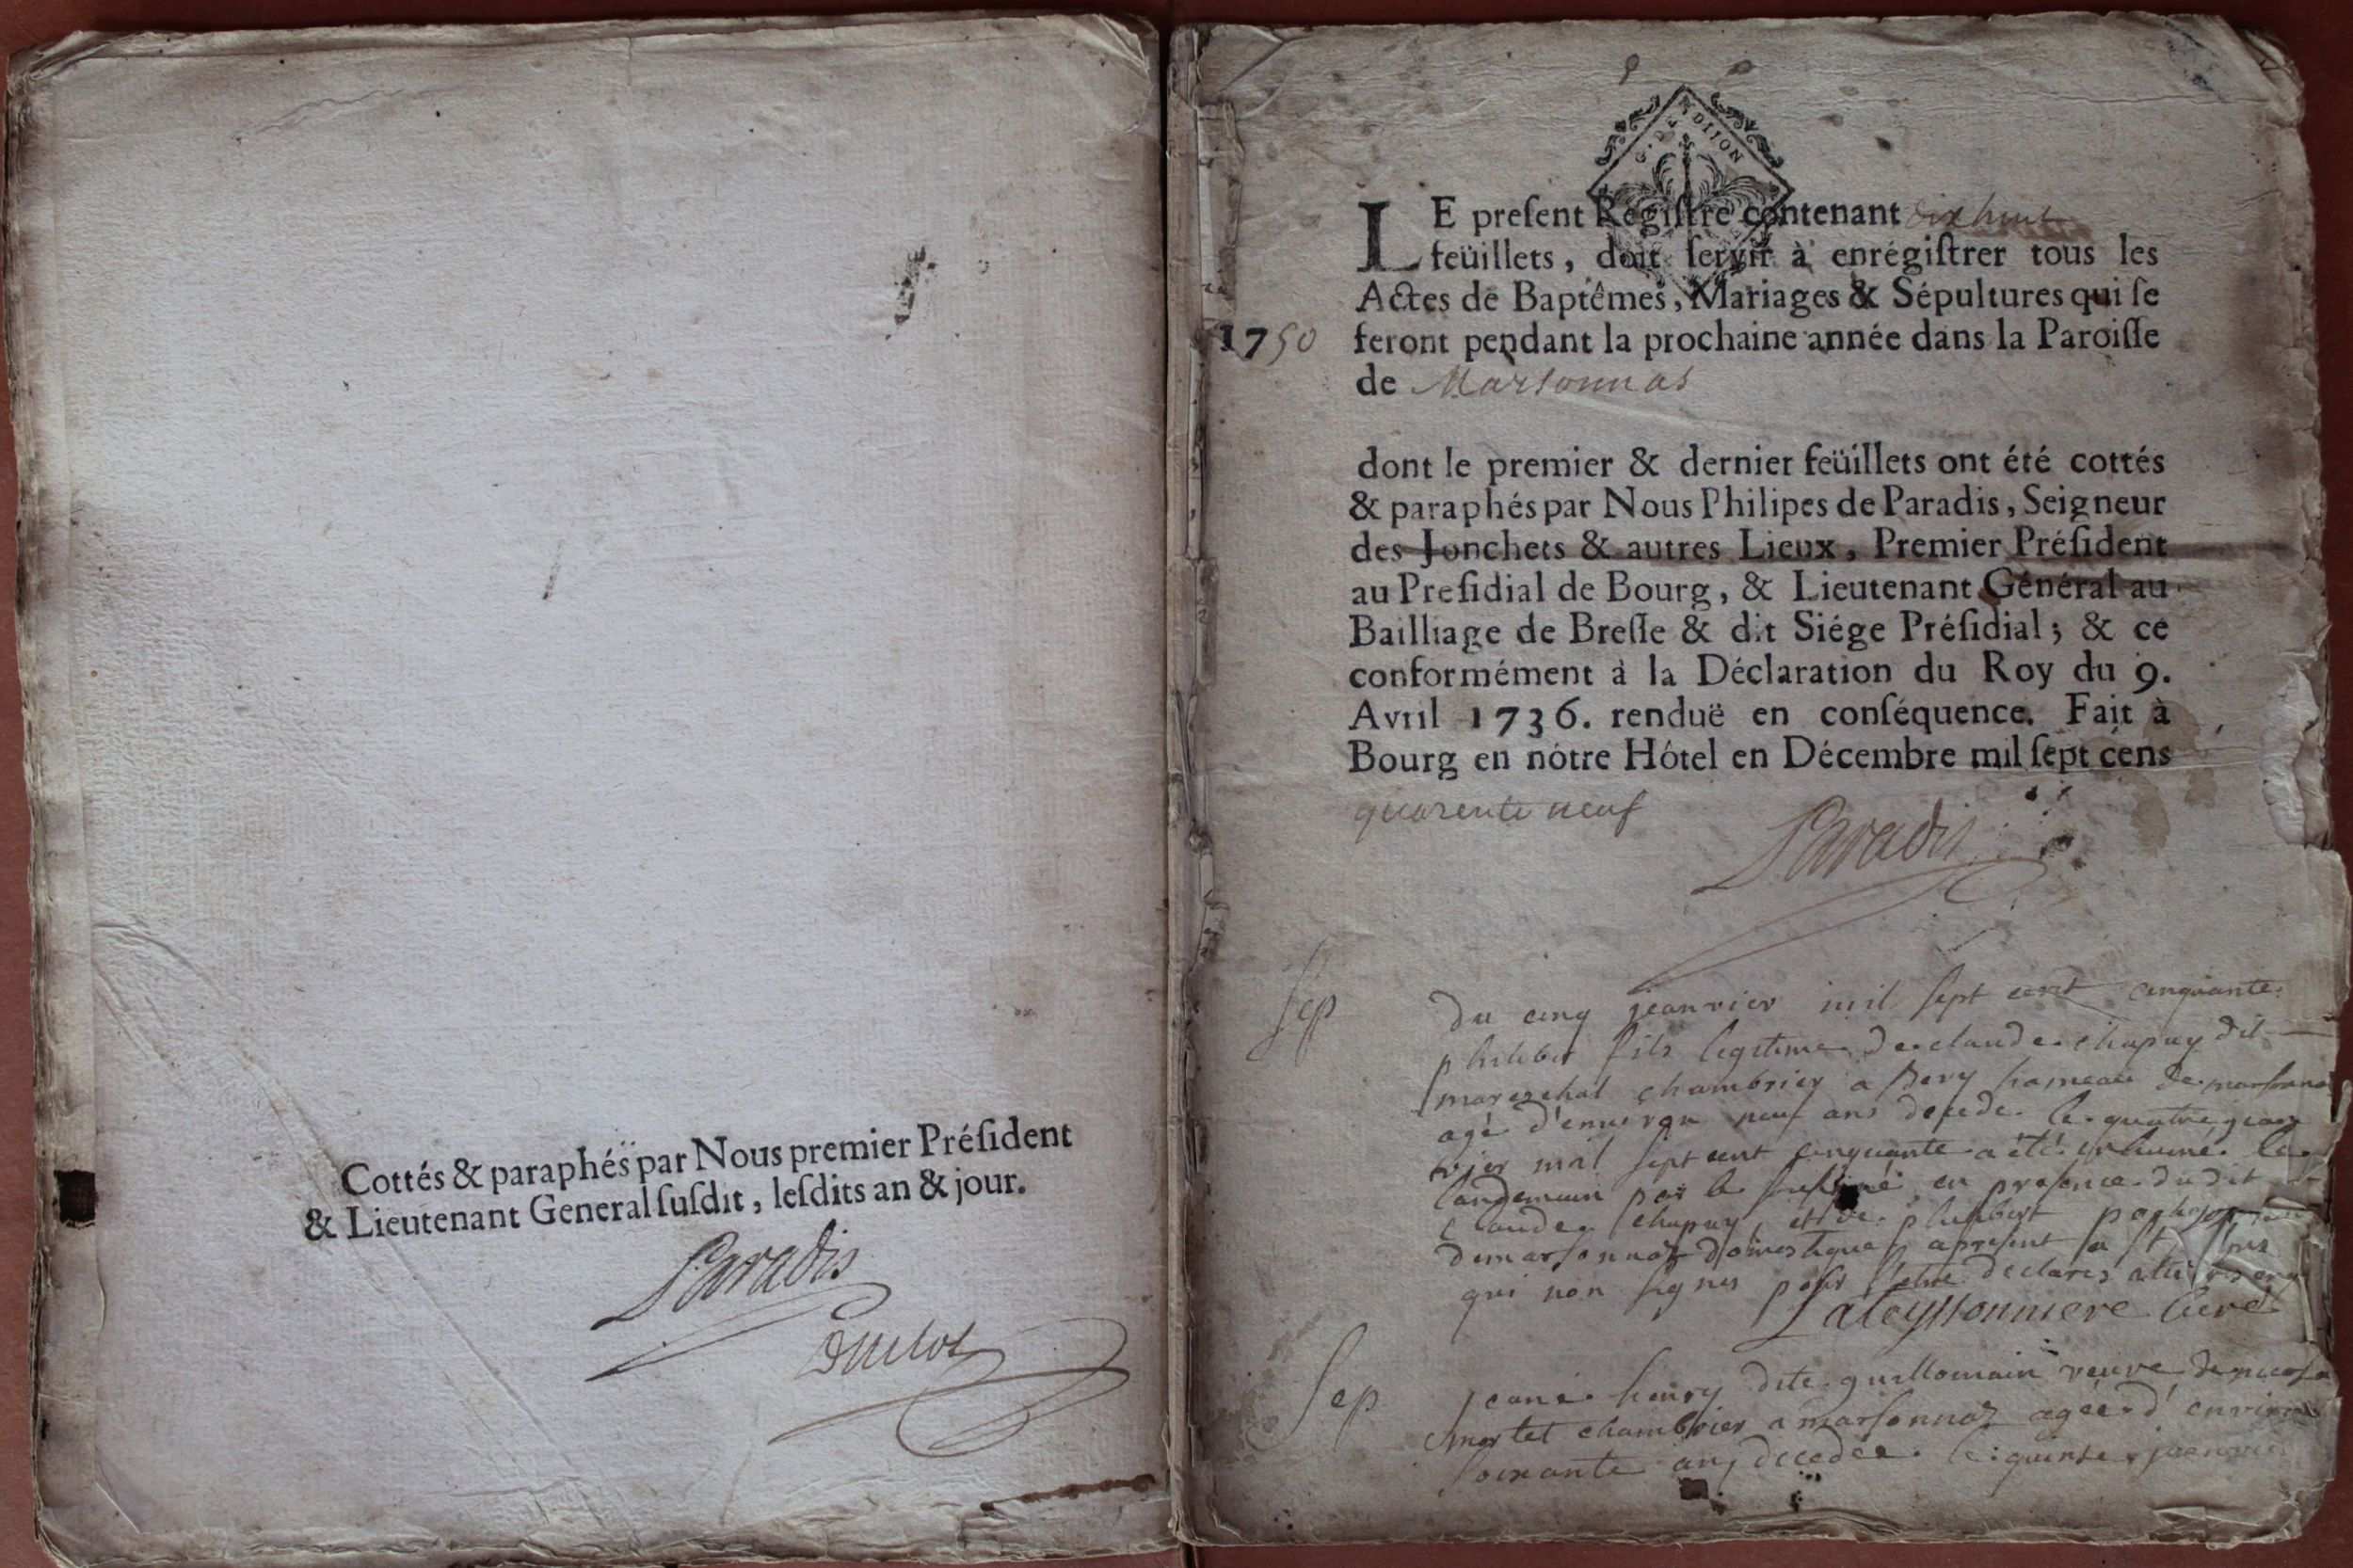 Cottés & paraphés par Nous premier Préſident
& Lieutenant General ſuſdit, leſdits an & jour.
Paradis
G. DE DIJON
LE preſent Régiſtre contenant dix huit
feüillets, doit ſervir à enrégiſtrer tous les
Actes de Baptêmes, Mariages & Sépultures qui ſe
1750 feront pendant la prochaine année dans la Paroiſſe
de Marsonnas
dont le premier & dernier feüillets ont été cottés
& paraphés par Nous Philipes de Paradis, Seigneur
des Jonchets & autres Lieux, Premier Préſident
au Preſidial de Bourg, & Lieutenant Général au
Bailliage de Breſſe & dit Siége Préſidial; & ce
conformément à la Déclaration du Roy du 9.
Avril 1736. renduë en conſéquence. Fait à
Bourg en nôtre Hôtel en Décembre mil ſept cens
quarente neuf
Paradis
Sep
du cinq jeanvier mil sept cent cinquante
philiber fils legitime de claude chapuy dit
mareschal chambrier a hameau de marsonna
agé d'environ neuf ans decede le quatre jean
vier mil sept cent cinquante a été inhumé le
landemain par le soussigné en presence dudit
claude chapuy et de philibert
de marsonnaz domestique apresent a st
qui non signes pour declarés
Lateyssonniere curé
Sep
jeane henry dite guillomain veuve de
mortet chambrier a marsonnaz agée d'environ
soixante ans decedee le quinse jeanvier